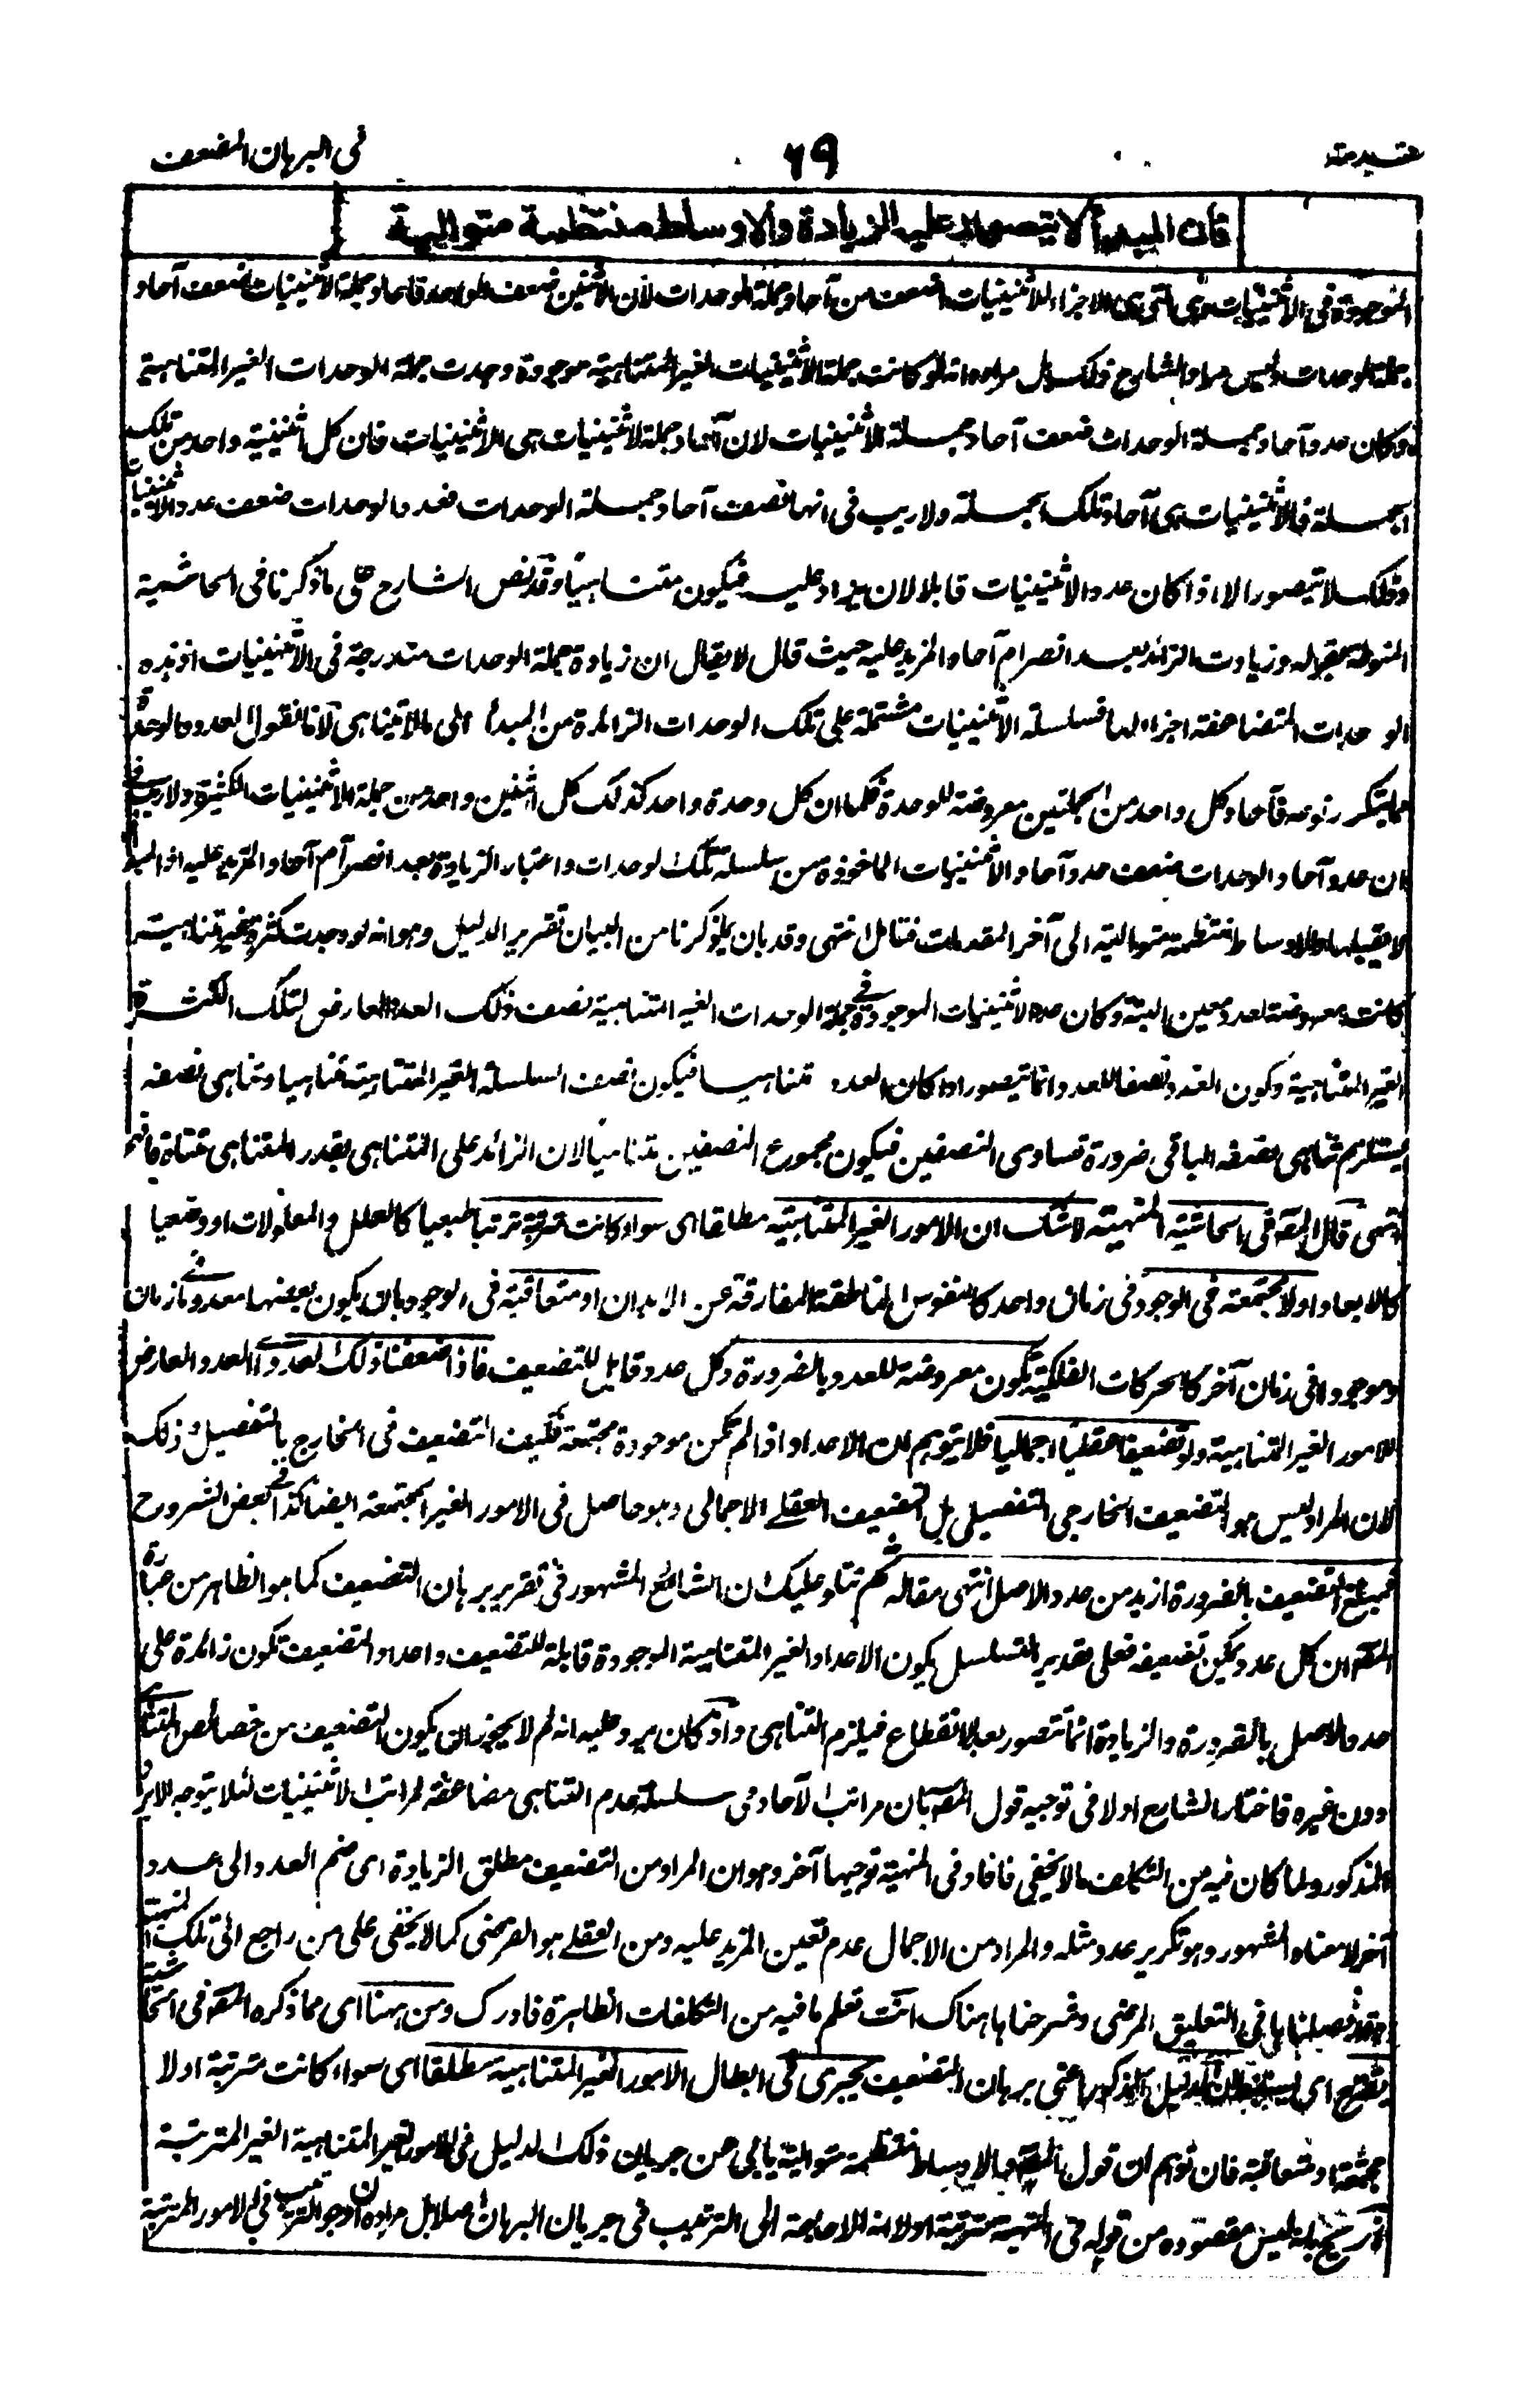 فى البرهان المضعف
٦٩
فان المبدأ لا يتصور عليه الزيادة والاوساط منتظمة متوالية
الموجودة فى الاثنينيات التى هى الاجزاء للاثنينيات ضعف من آحاد جملة الوحدات لان الاثنين ضعف الواحد فآحاد جملة الاثنينيات ضعف آحاد
جملة الوحدات وليس مراد الشارح ذلك بل مراده انه لو كانت جملة الاثنينيات الغير المتناهية موجودة وجدت جملة الوحدات الغير المتناهية
وكان عدد آحاد جملة الوحدات ضعف آحاد جملة الاثنينيات لان آحاد جملة الاثنينيات هى الاثنينيات فان كل اثنينية واحد من تلك
الجملة فالاثنينيات هى آحاد تلك الجملة ولا ريب فى انها نصف آحاد جملة الوحدات فعدد الوحدات ضعف عدد الاثنينيات
وذلك لا يتصور الا اذا كان عدد الاثنينيات قابلا لان يزاد عليه فيكون متناهيا وقد نص الشارح على ما ذكرنا فى الحاشية
المنوطة بقوله وزيادت الزائد بعد انصرام آحاد المزيد عليه حيث قال لا يقال ان زيادة جملة الوحدات مندرجة فى الاثنينيات اذ هذه
الوحدات المتضاعفة اجزاء لها فسلسلة الاثنينيات مشتملة على تلك الوحدات الزائدة من المبدأ الى ما لا يتناهى لانا نقول العدد والوحدة
مما يتكرر نوعه فآحاد كل واحد من الجملتين معروضة للوحدة فكما ان كل وحدة واحد كذلك كل اثنين واحد من جملة الاثنينيات الكثيرة ولا ريب فى
ان عدد آحاد الوحدات ضعف عدد آحاد الاثنينيات الماخوذة من سلسلة تلك الوحدات واعتبار الزيادة بعد انصرام آحاد المزيد عليه اذ المبدأ
لا يقبلها والاوساط منتظمة متوالية الى آخر المقدمات فتامل انتهى وقد بان بما ذكرنا من البيان تقرير الدليل وهو انه لو وجدت كثرة غير متناهية
كانت معروضة لعدد معين البتة وكان عدد الاثنينيات الموجودة فى جملة الوحدات الغير المتناهية نصف ذلك العدد العارض لتلك الكثرة
الغير المتناهية وكون العدد نصفا للعدد انما يتصور اذا كان العدد متناهيا فيكون نصف السلسلة الغير المتناهية متناهيا وتناهى نصفه
يستلزم تناهى نصفه الباقى ضرورة تساوى النصفين فيكون مجموع النصفين متناهيا لان الزائد على المتناهى بقدر المتناهى متناه فافهم
انتهى قال المصـ فى الحاشية المنهية لا شك ان الامور الغير المتناهية مطلقا اى سواء كانت مترتبة ترتبا طبعيا كالعلل والمعلولات او وضعيا
كالابعاد او لا مجتمعة فى الوجود فى زمان واحد كالنفوس الناطقة المفارقة عن الابدان او متعاقبة فى الوجود بان يكون بعضها معدوما فى زمان
وموجودا فى زمان آخر كالحركات الفلكية تكون معروضة للعدد بالضرورة وكل عدد قابل للتضعيف فاذا ضعفنا ذلك العدد اى العدد العارض
للامور الغير المتناهية ولو تضعيفا عقليا اجماليا فلا يتوهم ان الاعداد اذا لم تكن موجودة مجتمعة فكيف التضعيف فى الخارج بالتفصيل وذلك
لان المراد ليس هو التضعيف الخارجى التفصيلى بل التضعيف العقلى الاجمالى وهو حاصل فى الامور الغير المجتمعة ايضا كذا فى بعض الشروح
فمبلغ التضعيف بالضرورة ازيد من عدد الاصل انتهى مقاله ثم نتلو عليك ان الشائع المشهور فى تقرير برهان التضعيف كما هو الظاهر من عبارة
المصـ ان كل عدد يمكن تضعيفه فعلى تقدير التسلسل يكون الاعداد الغير المتناهية الموجودة قابلة للتضعيف واعداد التضعيف تكون زائدة على
عدد الاصل بالضرورة والزيادة انما تتصور بعد الانقطاع فيلزم التناهى واذ كان يرد عليه انه لم لا يجوز ان يكون التضعيف من خصائص المتناهى
دون غيره فاختار الشارح اولا فى توجيه قول المصـ بان مراتب الآحاد فى سلسلة عدم التناهى مضاعفة لمراتب الاثنينيات لئلا يتوجه الايراد
المذكور ولما كان فيه من التكلف ما لا يخفى فافاد فى المنهية توجيها آخر وهو ان المراد من التضعيف مطلق الزيادة اى ضم العدد الى عدد
آخر لا معناه المشهور وهو تكرير عدد مثله والمراد من الاجمال عدم تعين المزيد عليه ومن العقلى هو الفرضى كما لا يخفى على من راجع الى تلك المنهية
وقد فصلناها فى التعليق المرضى وشرحناها هناك انت تعلم ما فيه من التكلفات الظاهرة فادرك ومن ههنا اى مما ذكره المصـ فى الحاشية
يتضح اى الدليل المذكور اعنى برهان التضعيف يجرى فى ابطال الامور الغير المتناهية مطلقا اى سواء كانت مترتبة او لا
مجتمعة او متعاقبة فان توهم ان قول المصـ والاوساط منتظمة متوالية يابى عن جريان ذلك الدليل فى الامور الغير المتناهية الغير المترتبة
بانه ليس مقصوده من قوله فى المنهية مترتبة او لا انه لا حاجة الى الترتيب فى جريان البرهان اصلا بل مراده ان وجود الترتيب فى الامور المترتبة